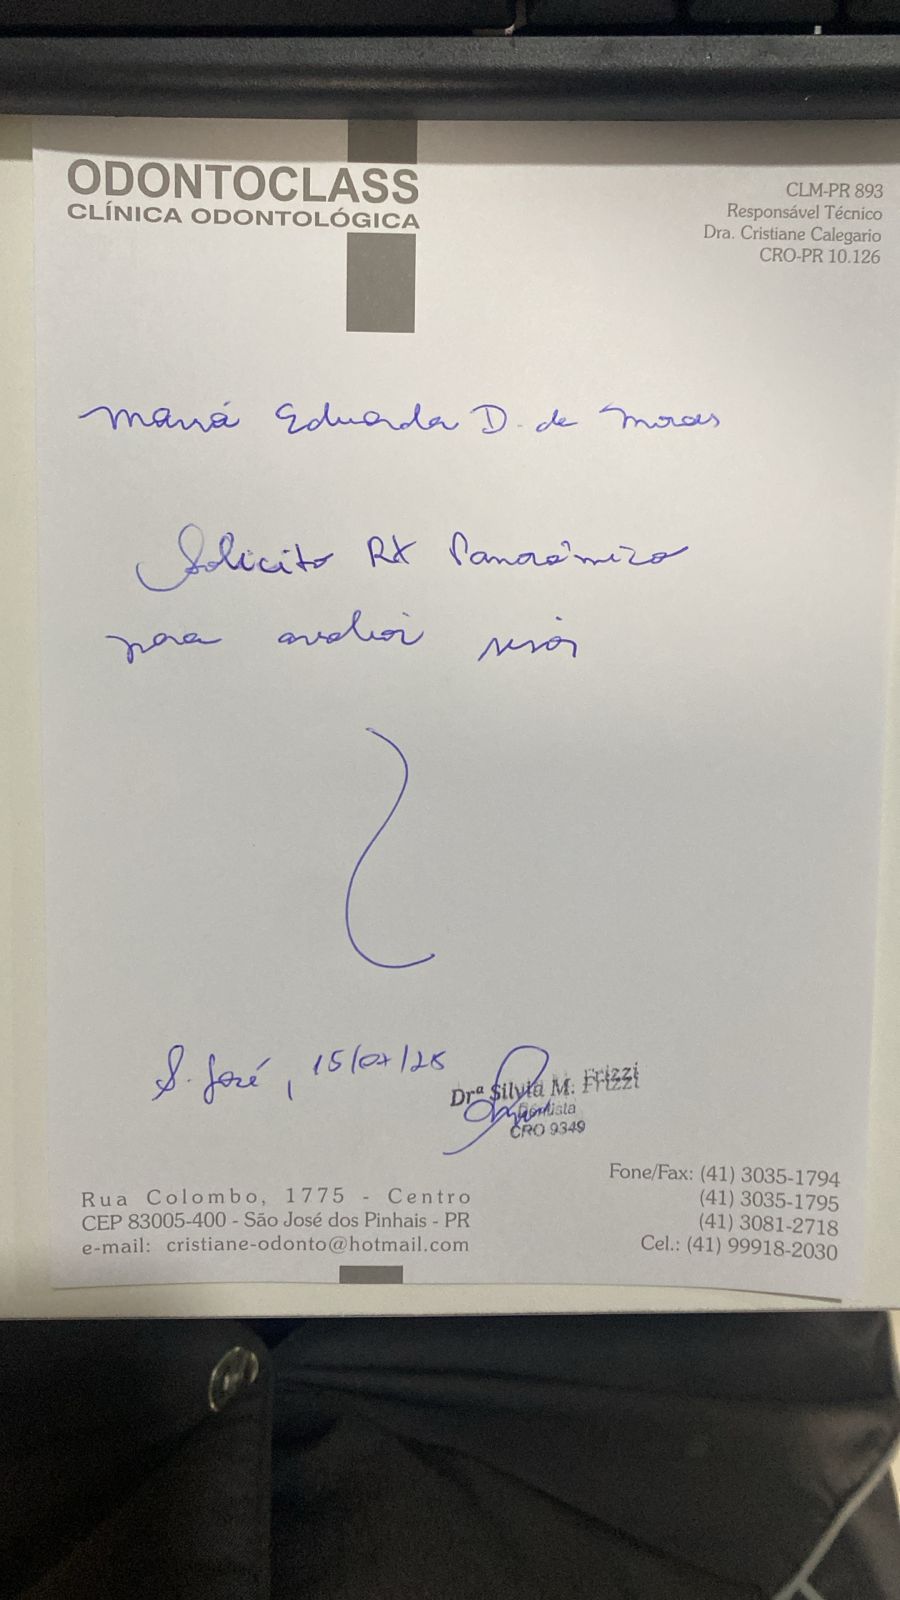 ODONTOCLASS
CLÍNICA ODONTOLÓGICA
CLM-PR 893
Responsável Técnico
Dra. Cristiane Calegario
CRO-PR 10.126
Maria Eduarda D. de Moraes
Solicito RX Panorâmico
para avaliar sisos
S. José, 15/07/25
Drª Silvia M. Frizzi
Dentista
CRO 9349
Rua Colombo, 1775 - Centro
CEP 83005-400 - São José dos Pinhais - PR
e-mail: cristiane-odonto@hotmail.com
Fone/Fax: (41) 3035-1794
(41) 3035-1795
(41) 3081-2718
Cel.: (41) 99918-2030